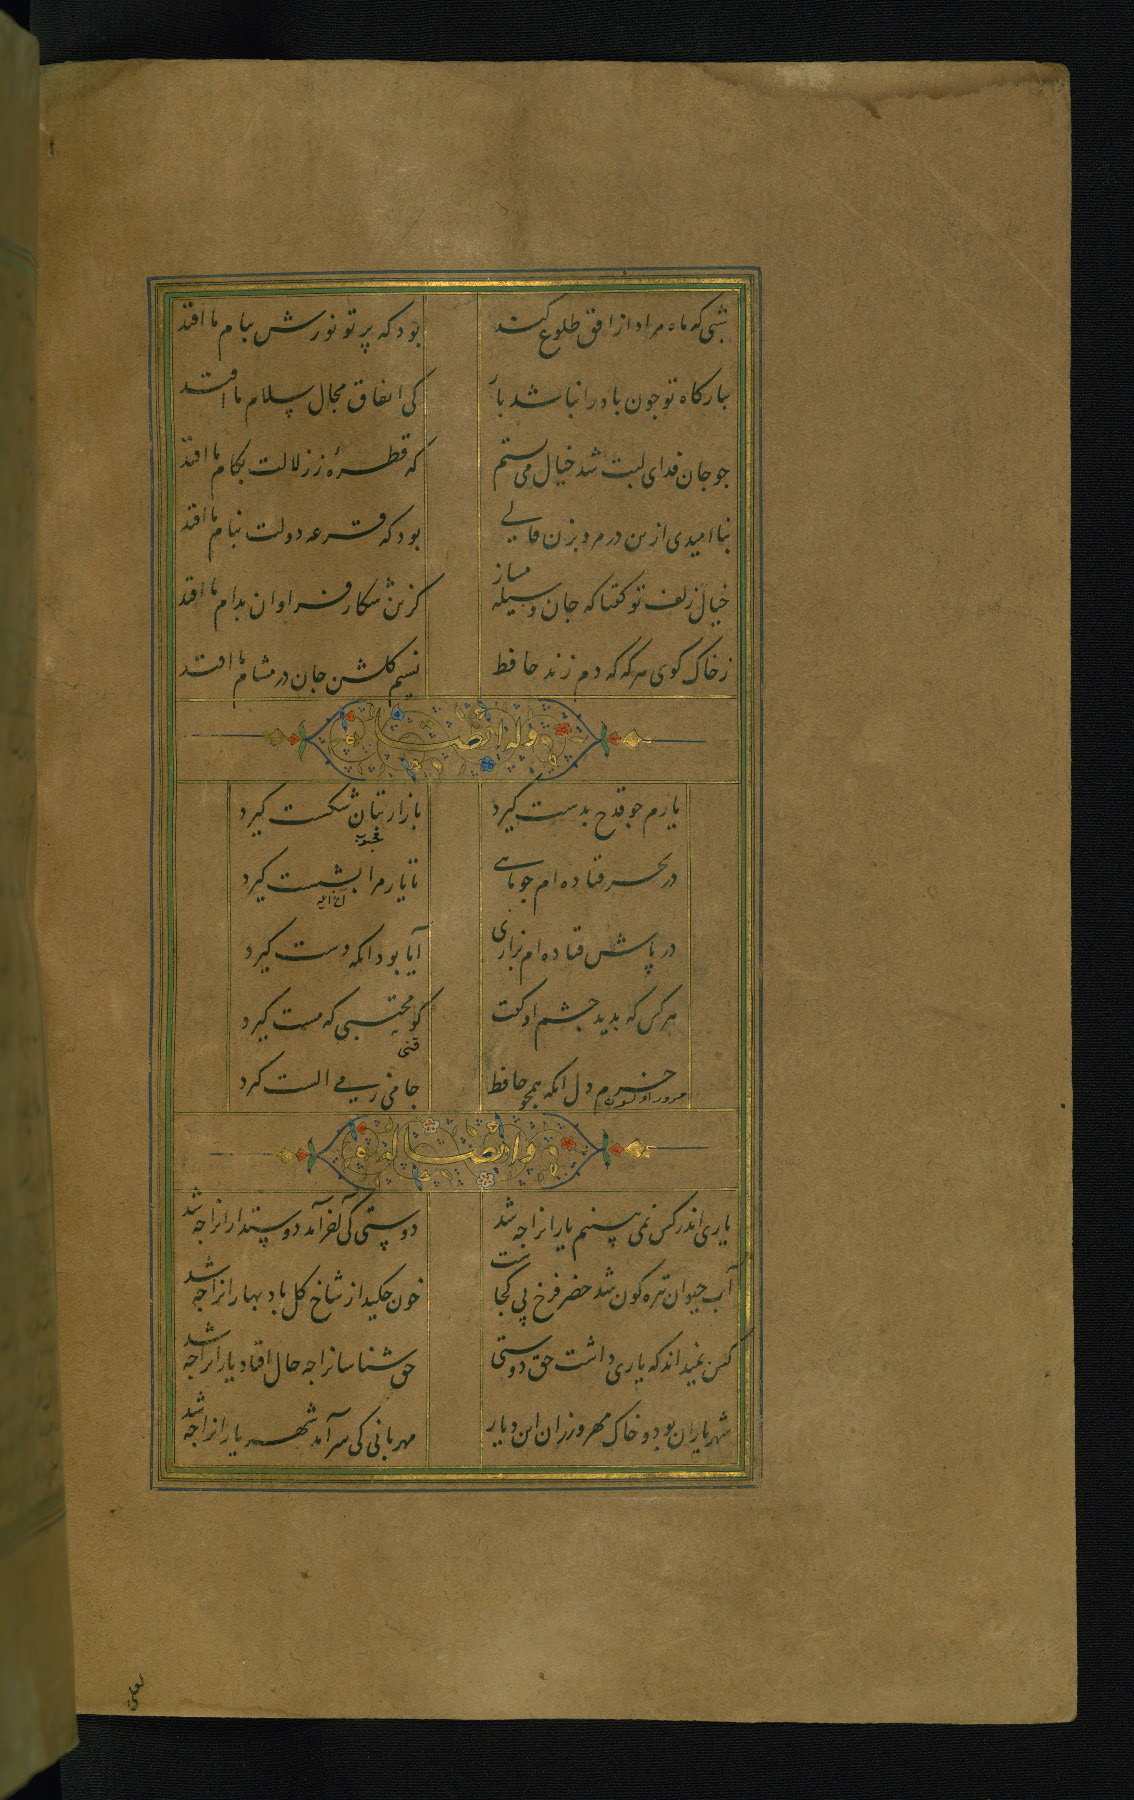 شبی که ماه مراد از افق طلوع کند بود که پرتو نورش ببام ما افتد
ببارکاه تو جون باد را نباشد بار کی اتفاق مجال سلام ما افتد
جو جان فدای لبت شد خیال می بستم که قطرهٔ ز زلالت بکام ما افتد
بنا امیدی ازین در مرو بزن فالی بود که قرعه دولت بنام ما افتد
خیال زلف تو کفتا که جان وسیله مساز کزین شکار فراوان بدام ما افتد
ز خاک کوی هر که که دم زند حافظ نسیم کلشن جان در مشام ما افتد
وله ایضا
یارم جو قدح بدست کیرد بازار بتان شکست کیرد
در بحر فتاده ام جو ماهی تا یار مرا بشست کیرد
در پاش فتاده ام بزاری آیا بود انکه دست کیرد
هر کس که بدید جشم او کفت کو محتسبی که مست کیرد
خرم دل انکه همجو حافظ جامی ز می الست کیرد
وایضا له
یاری اندر کس نمی بینم یارانرا جه شد دوستی کی آخر آمد دوستدارانرا جه شد
آب حیوان تیره کون شد خضر فرخ پی کجاست خون جکید از شاخ کل باد بهارانرا جه شد
کس نمیداند که یاری داشت حق دوستی حق شناسانرا جه حال افتاد یارانرا جه شد
شهر یاران بود و خاک مهرورزان این دیار مهربانی کی سر آمد شهریارانرا جه شد